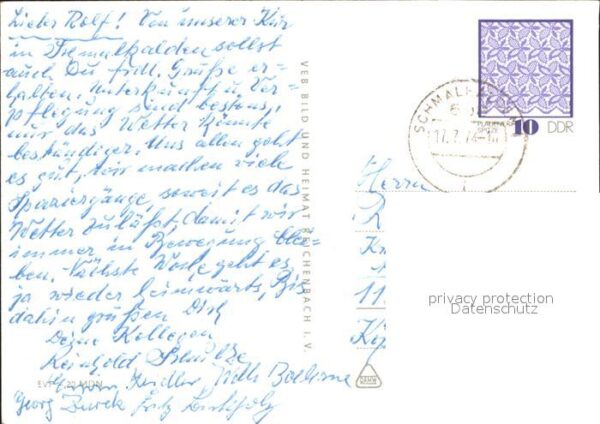 Lieber Rolf! Von unserer Kur
in Schmalkalden sollst
auch Du frdl. Grüße er-
halten. Unterkunft u. Ver-
pflegung sind bestens,
nur das Wetter könnte
beständiger. Uns allen geht
es gut, wir machen viele
Spaziergänge, soweit es das
Wetter zuläßt, damit wir
immer in Bewegung blei-
ben. Nächste Woche geht es
ja wieder heimwärts, Bis
dahin grüßen Dich
Deine Kollegen
Reinhold Schulze
Willi
Georg Fritz
VEB BILD UND HEIMAT REICHENBACH I. V.
EVP 0,20 MDN
SCHMALKALDEN
17.7.74
PLAUENER
SPITZE
10 DDR
Herrn
R
K
11
privacy protection
Datenschutz